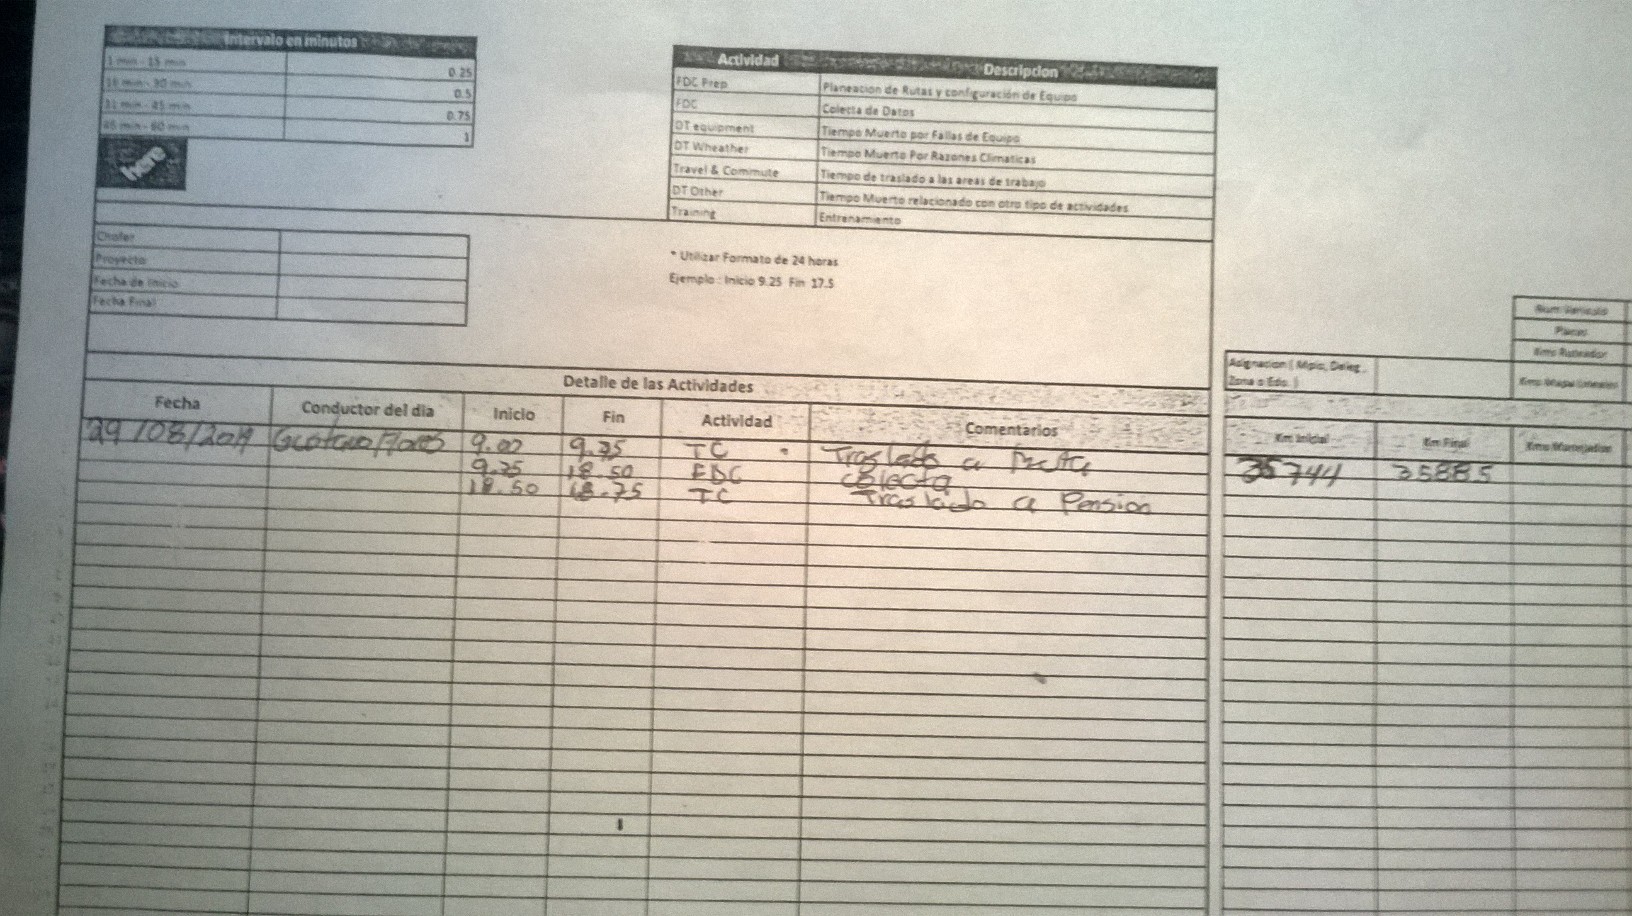 Intervalo en minutos
1 min - 15 min 0.25
16 min - 30 min 0.5
31 min - 45 min 0.75
45 min - 60 min 1
here
Actividad Descripcion
FDC Prep Planeacion de Rutas y configuración de Equipo
FDC Colecta de Datos
DT equipment Tiempo Muerto por Fallas de Equipo
DT Wheather Tiempo Muerto Por Razones Climaticas
Travel & Commute Tiempo de traslado a las areas de trabajo
DT Other Tiempo Muerto relacionado con otro tipo de actividades
Training Entrenamiento
Chofer
Proyecto
Fecha de Inicio
Fecha Final
* Utilizar Formato de 24 horas
Ejemplo : Inicio 9.25 Fin 17.5
Num Vehiculo
Placas
Kms Ruteador
Asignacion ( Mpio, Deleg.,
Zona o Edo. )
Detalle de las Actividades
Fecha Conductor del dia Inicio Fin Actividad Comentarios Km Inicial Km Final Kms Manejados
29/08/2014 Gustavo Flores 9.00 9.25 TC Traslado a Ruta 35744 35885
9.25 18.50 FDC colecta
18.50 18.75 TC Traslado a Pension